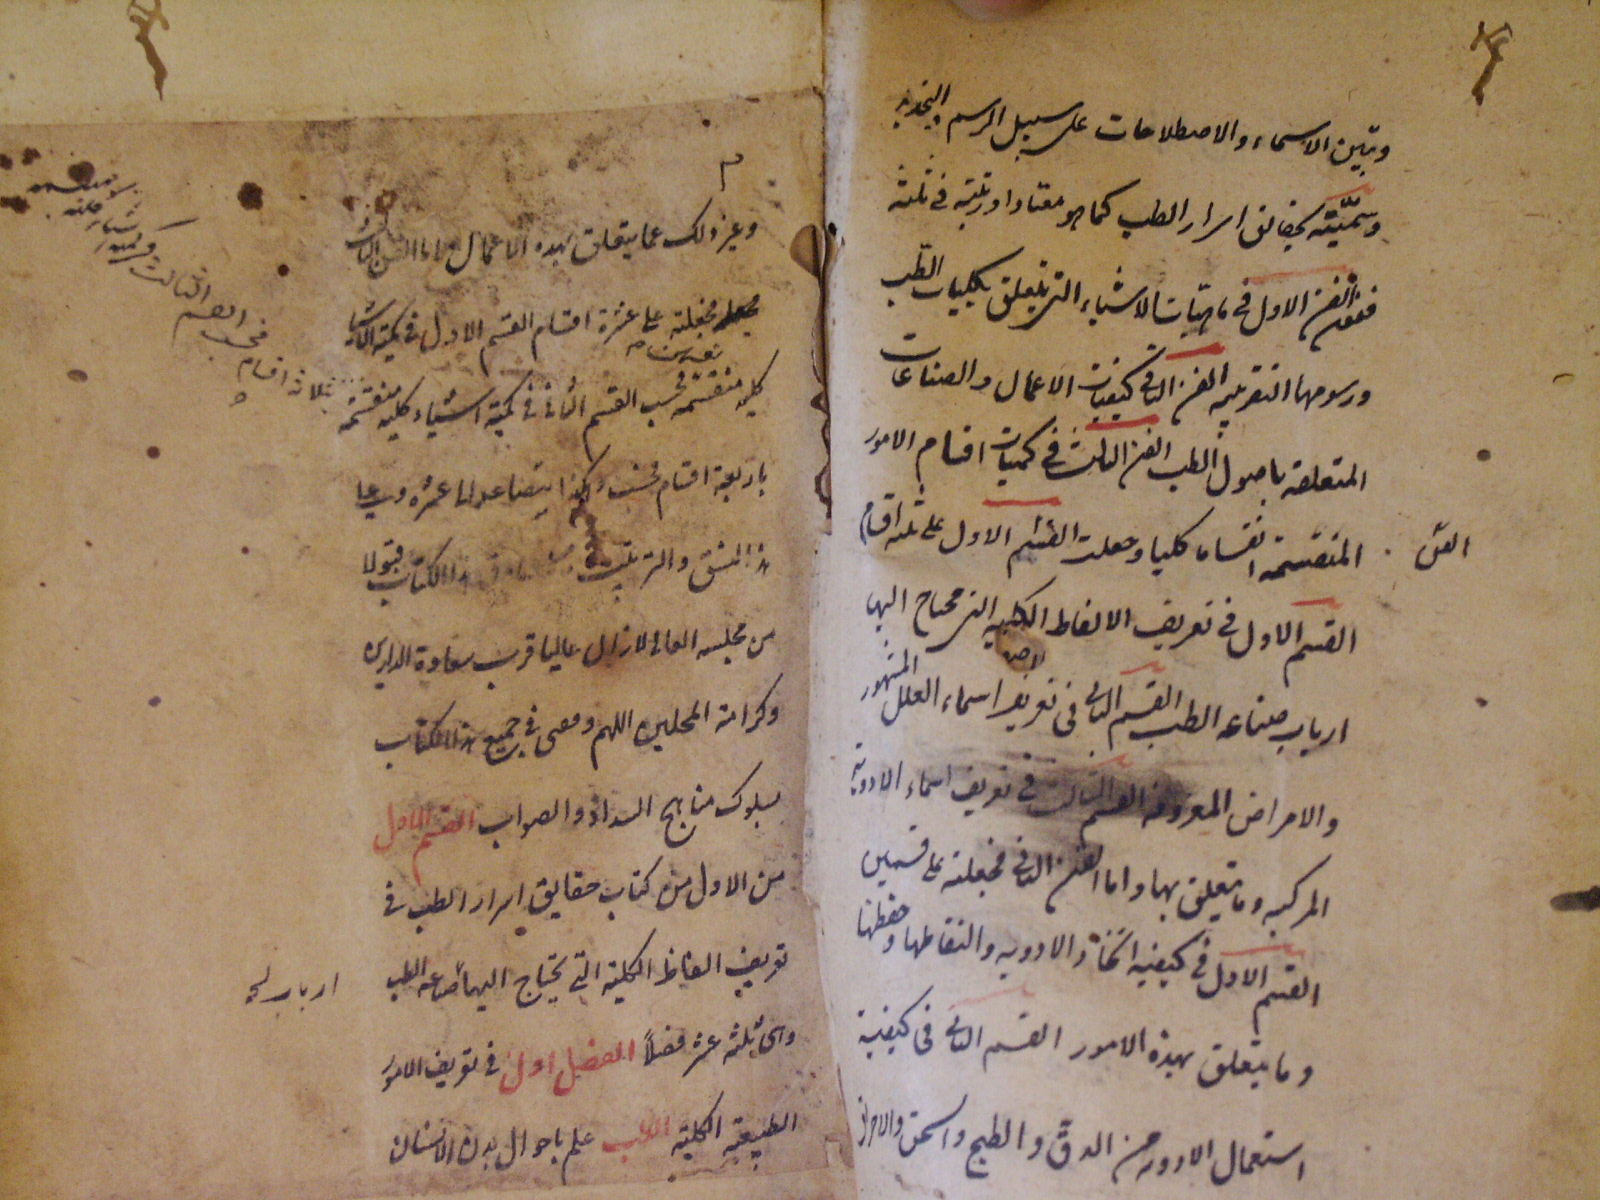 وتبين الاسماء والاصطلاحات على سبيل الرسم
وسمّيته بحقائق اسرار الطب كما هو معتاد ورتبته فى ثلثة
فنون الفن الاول فى ماهيات الاشياء التى يتعلق بكليات الطب
ورسومها التقريبيه الفن الثانى فى كيفيات الاعمال والصناعات
المتعلقه باصول الطب الفن الثالث فى كميات اقسام الامور
المنقسمة انقساما كليا وجعلت القسم الاول على ثلثه اقسام
الفن
القسم الاول فى تعريف الالفاظ الكليه التى محتاج اليها
ارباب صناعه الطب القسم الثانى فى تعريف اسماء العلل المشهور
والامراض المعروفه القسم الثالث فى تعريف اسماء الادوية
المركبه وما يتعلق بها واما الفن الثانى فجعلته على قسمين
القسم الاول فى كيفية اتخاذ الادويه والتقاطها وحفظها
وما يتعلق بهذه الامور القسم الثانى فى كيفية
استعمال الادويه من الدق والطبخ والسحق والاحراق
وغير ذلك مما يتعلق بهذه الاعمال واما الفن الثالث
فجعلته على عشرة اقسام القسم الاول فى كمية الاشيا
كليه منقسمة فحسب القسم الثانى فى كمية اشياء كليه منقسمة
باربعة اقسام فحسب وهكذا يتصاعد الى عشره وب على
هذا النسق والترتيب هذا الكتاب قبولا
من مجلسه العالى لا زال عاليا قرب سعادة الدارين
وكرامة المحلين اللهم وفقنى فى جميع هذا الكتاب
بسلوك مناهج السداد والصواب القسم الاول
من الاول من كتاب حقايق اسرار الطب فى
تعريف الفاظ الكلية التى يحتاج اليها صناعه الطب
ارباب
وهى ثلثه عشر فصلاً الفصل اول فى تعريف الامور
الطبيعية الكلية الطب علم باحوال بدن الانسان
القسم الثالث
بثلاثة اقسام فحسب